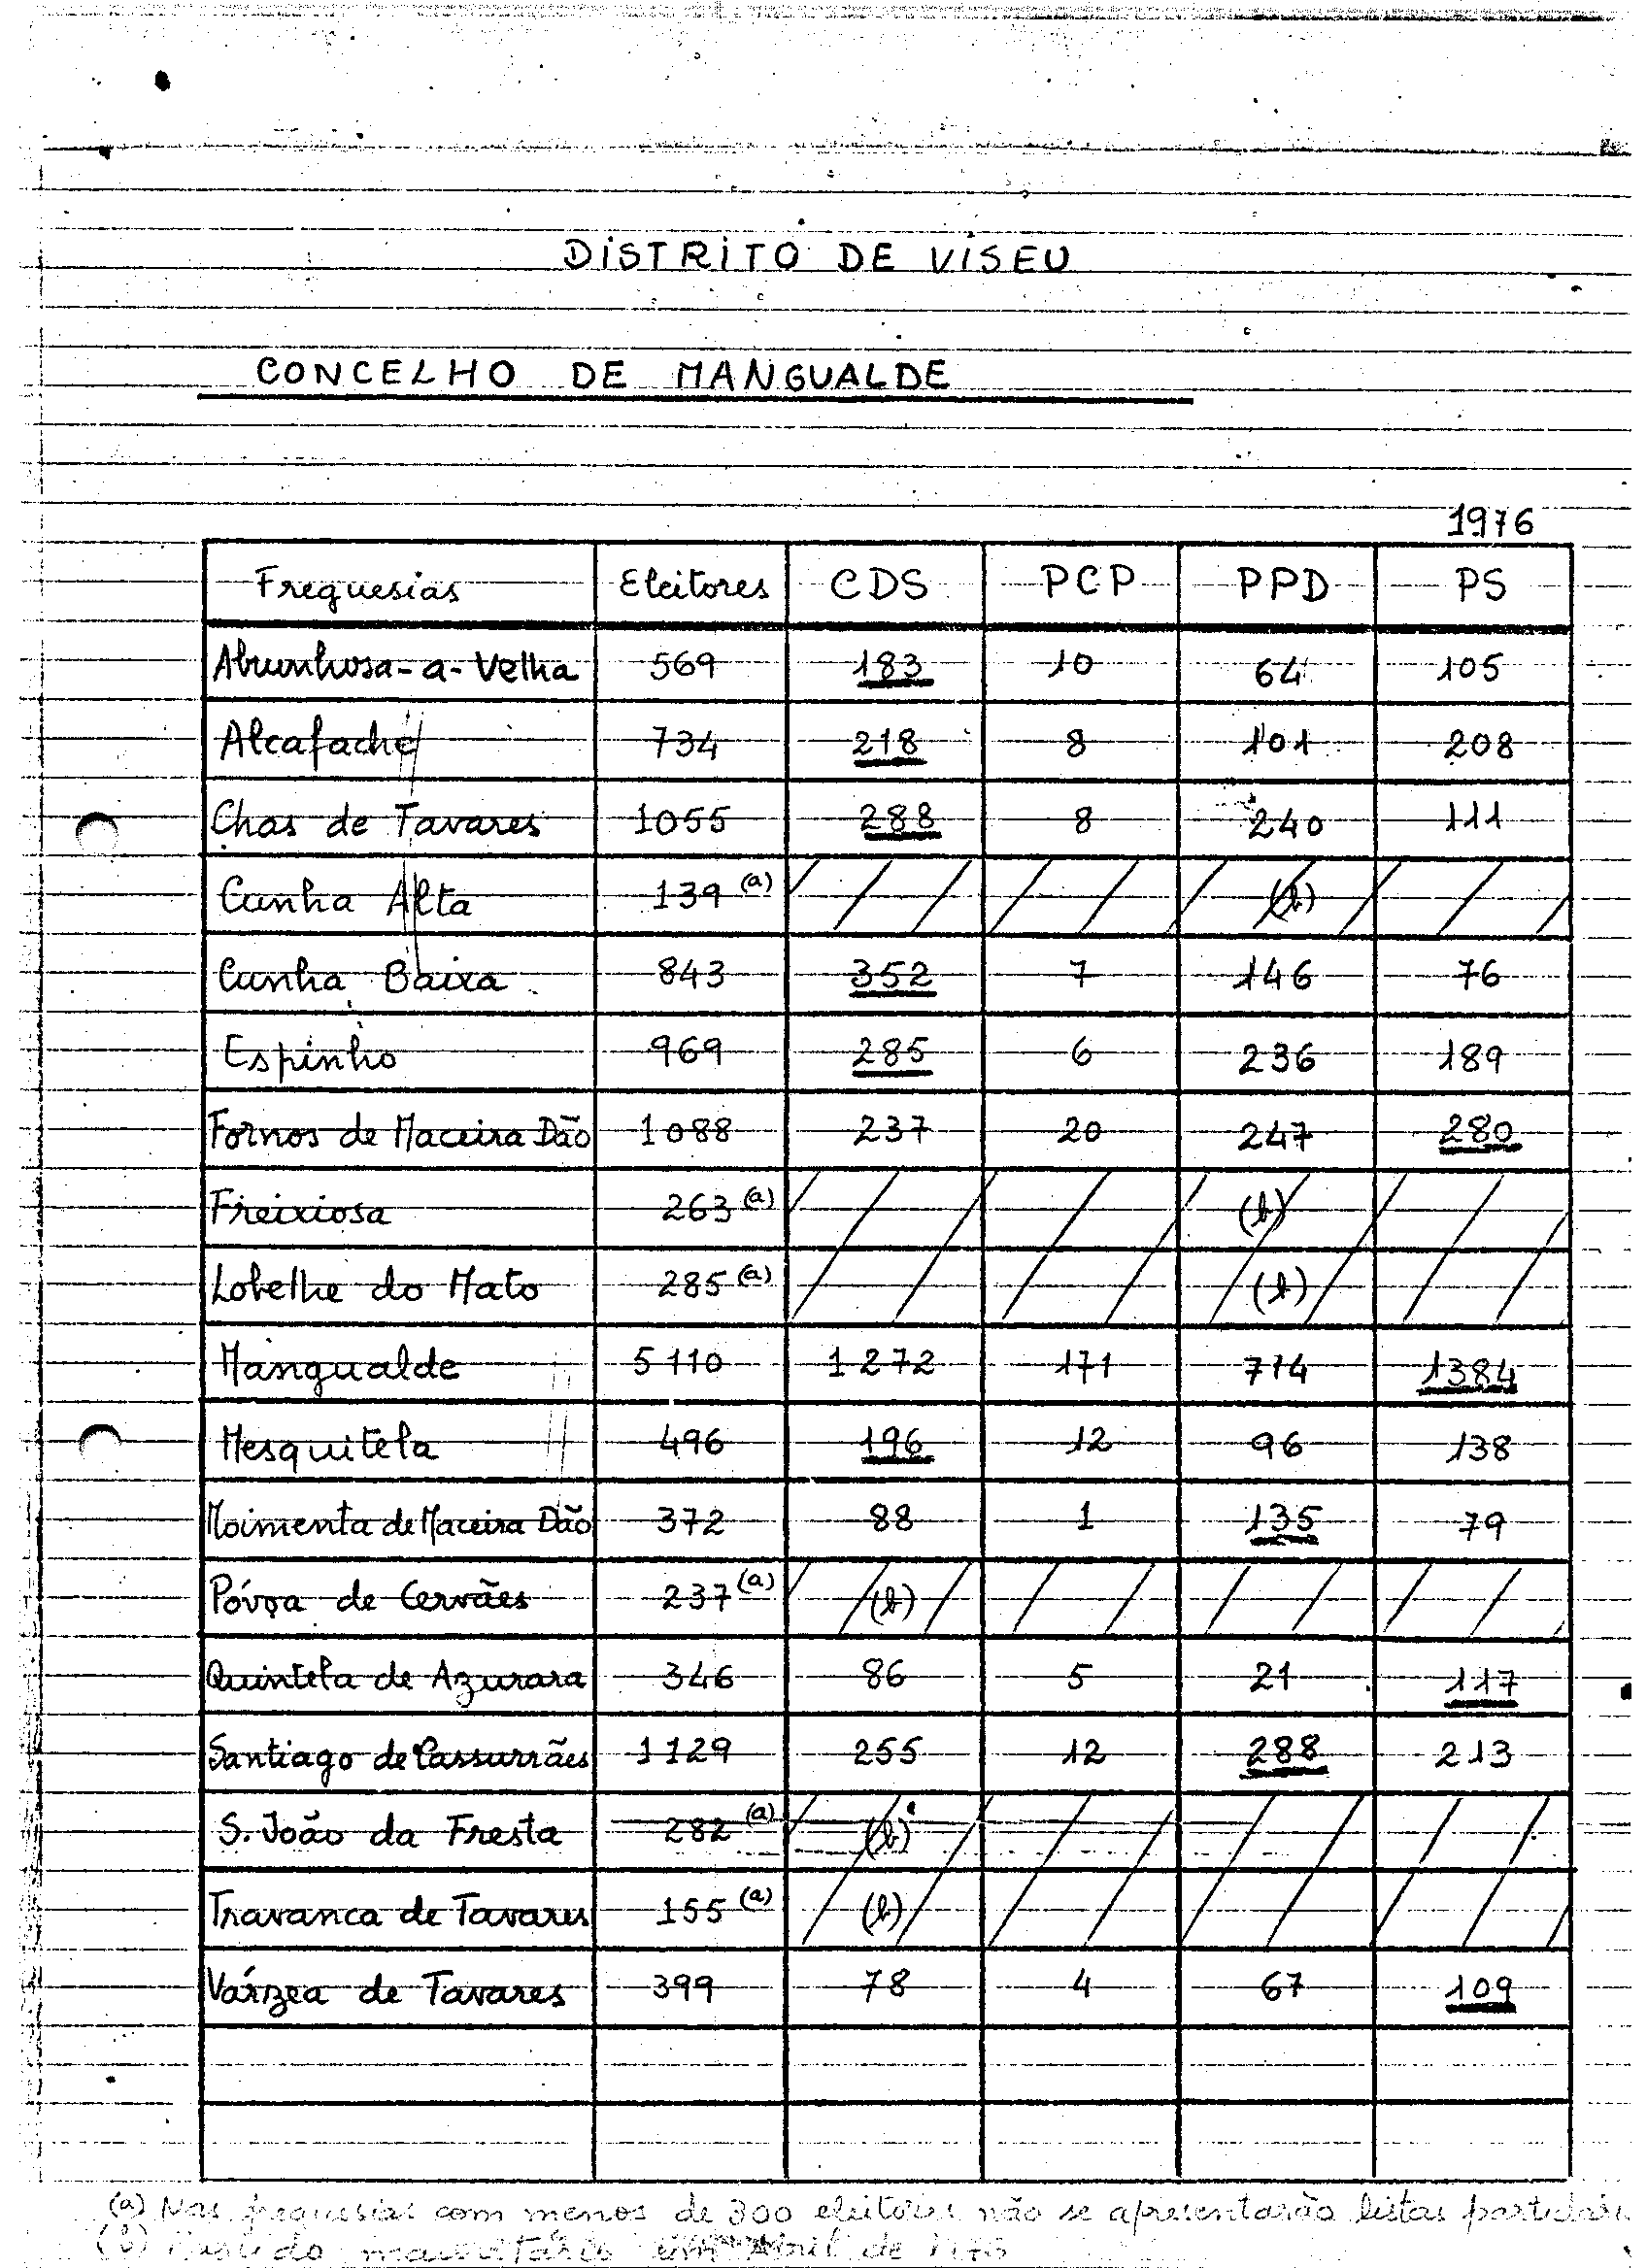 DISTRITO DE VISEU
CONCELHO DE MANGUALDE
1976
Freguesias Eleitores CDS PCP PPD PS
Abrunhosa-a-Velha 569 183 10 64 105
Alcafache 734 218 8 101 208
Chas de Tavares 1055 288 8 240 111
Cunha Alta 139 (a) (b)
Cunha Baixa 843 352 7 146 76
Espinho 969 285 6 236 189
Fornos de Maceira Dão 1088 237 20 247 280
Freixiosa 263 (a) (b)
Lobelhe do Mato 285 (a) (b)
Mangualde 5110 1272 171 714 1384
Mesquitela 496 196 12 96 138
Moimenta de Maceira Dão 372 88 1 135 79
Póvoa de Cervães 237 (a) (b)
Quintela de Azurara 346 86 5 21 117
Santiago de Cassurrães 1129 255 12 288 213
S. João da Fresta 282 (a) (b)
Travanca de Tavares 155 (a) (b)
Várzea de Tavares 399 78 4 67 109
(a) Nas freguesias com menos de 300 eleitores não se apresentarão listas
(b) Partido maioritário em Abril de 1976